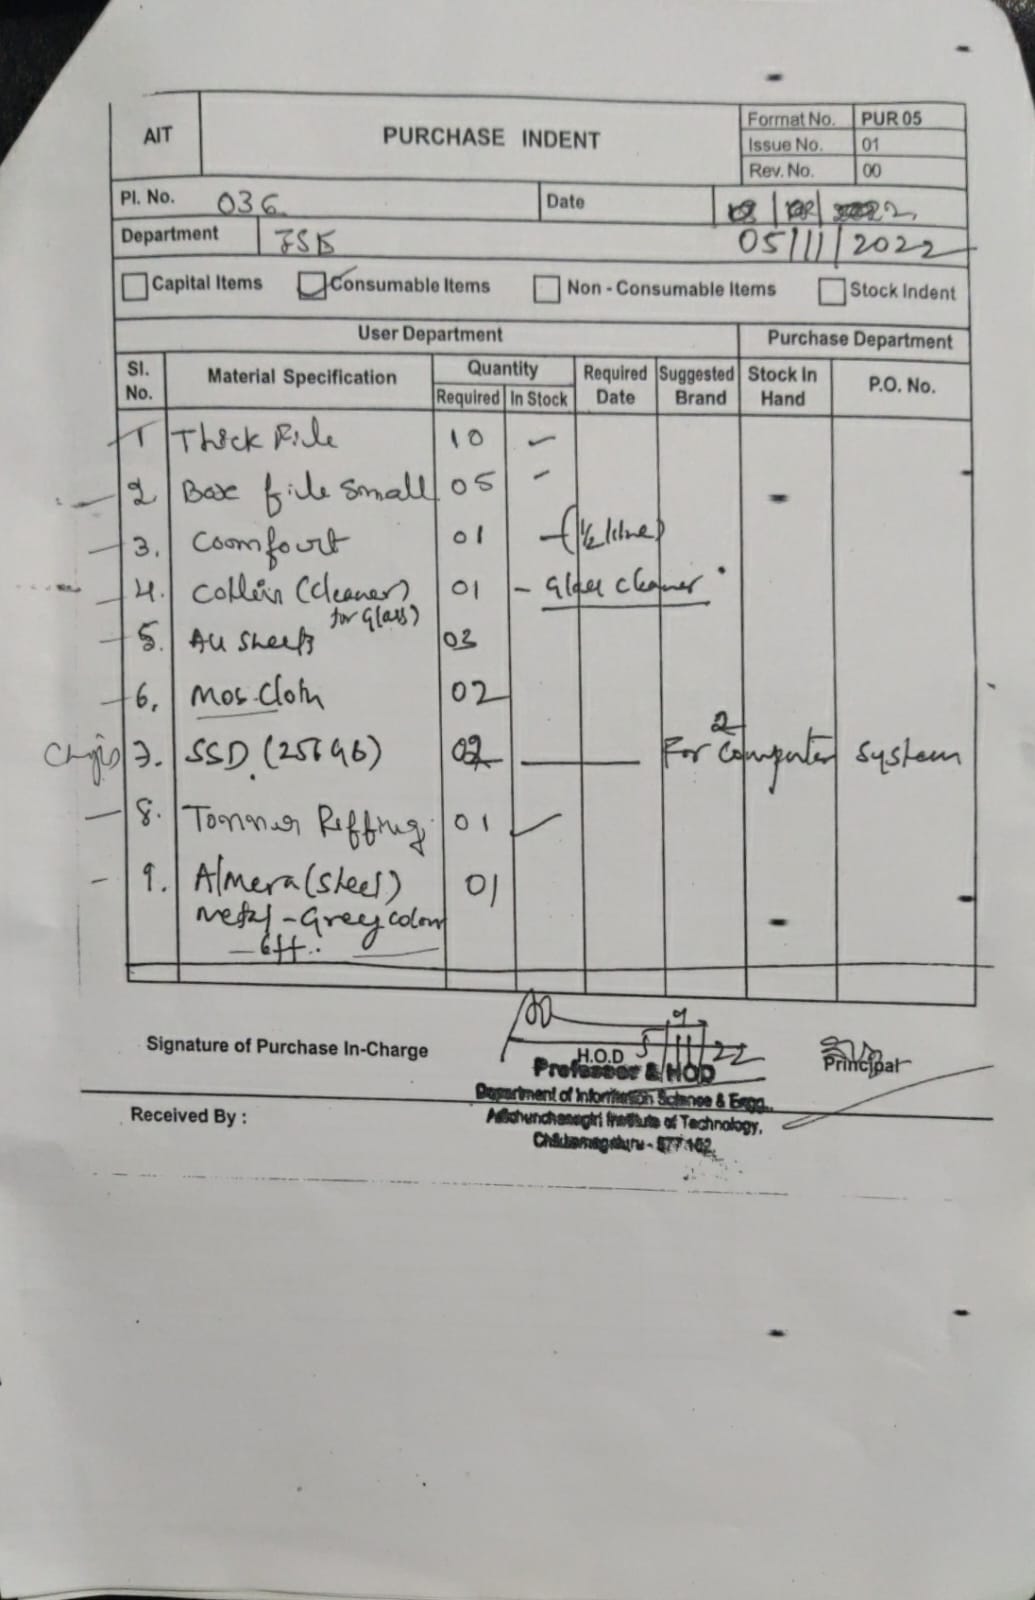 AIT
PURCHASE INDENT
Format No. PUR 05
Issue No. 01
Rev. No. 00
PI. No. 036
Date
Department ISE
05/11/2022
Capital Items Consumable Items Non - Consumable Items Stock Indent
User Department Purchase Department
Sl. No. Material Specification Quantity Required In Stock Required Date Suggested Brand Stock In Hand P.O. No.
1 Thick File 10
2 Box file small 05
3. Coomfourt 01 (1/2 litre)
4. Collin (Cleaner) 01 - Glass cleaner
for Glass)
5. A4 Sheets 03
6. Mos Cloth 02
7. SSD (256 Gb) 02 For 2 Computer System
8. Tonner Reffing 01
9. Almera (Steel) 01
Metal - Grey colour
6ft.
Signature of Purchase In-Charge
H.O.D 5/11/22
Principal
Professor & HOD
Department of Information Science & Engg.,
Adichunchanagiri Institute of Technology,
Chikkamagaluru - 577 102.
Received By :